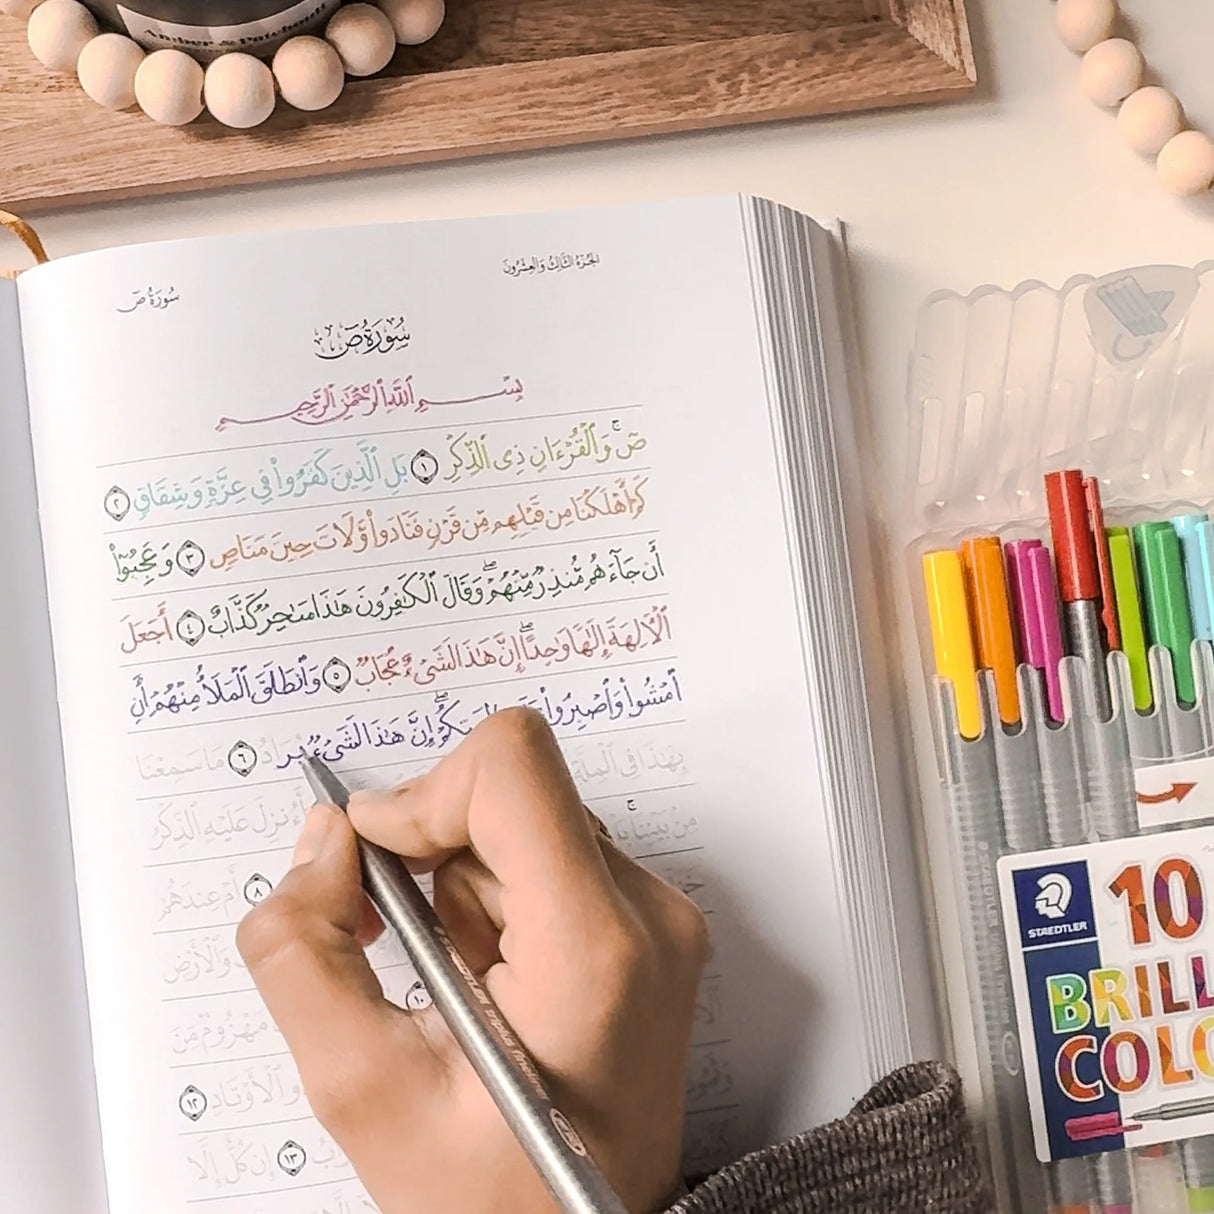 Amber & Patchouli
الجزء الثالث والعشرون
سورة ص
سُورَةُ صٓ
بِسْمِ ٱللَّهِ ٱلرَّحْمَٰنِ ٱلرَّحِيمِ
صٓ ۚ وَٱلْقُرْءَانِ ذِى ٱلذِّكْرِ ١ بَلِ ٱلَّذِينَ كَفَرُوا۟ فِى عِزَّةٍ وَشِقَاقٍ ٢
كَمْ أَهْلَكْنَا مِن قَبْلِهِم مِّن قَرْنٍ فَنَادَوا۟ وَّلَاتَ حِينَ مَنَاصٍ ٣ وَعَجِبُوٓا۟
أَن جَآءَهُم مُّنذِرٌ مِّنْهُمْ ۖ وَقَالَ ٱلْكَٰفِرُونَ هَٰذَا سَٰحِرٌ كَذَّابٌ ٤ أَجَعَلَ
ٱلْأَلِهَةَ إِلَٰهًا وَٰحِدًا ۖ إِنَّ هَٰذَا لَشَىْءٌ عُجَابٌ ٥ وَٱنطَلَقَ ٱلْمَلَأُ مِنْهُمْ أَنِ
ٱمْشُوا۟ وَٱصْبِرُوا۟ ۖ إِنَّ هَٰذَا لَشَىْءٌ يُرَادُ ٦ مَا سَمِعْنَا
بِهَٰذَا فِى ٱلْمِلَّةِ
مِنۢ بَيْنِنَا ۚ
أَءُنزِلَ عَلَيْهِ ٱلذِّكْرُ
٨ أَمْ عِندَهُمْ
وَٱلْأَرْضِ
١٠
مَهْزُومٌ مِّنَ
ٱلْأَوْتَادِ ١٢
١٣ إِن كُلٌّ إِلَّا
STAEDTLER
10
BRILL
COLO
STAEDTLER triplus fineliner